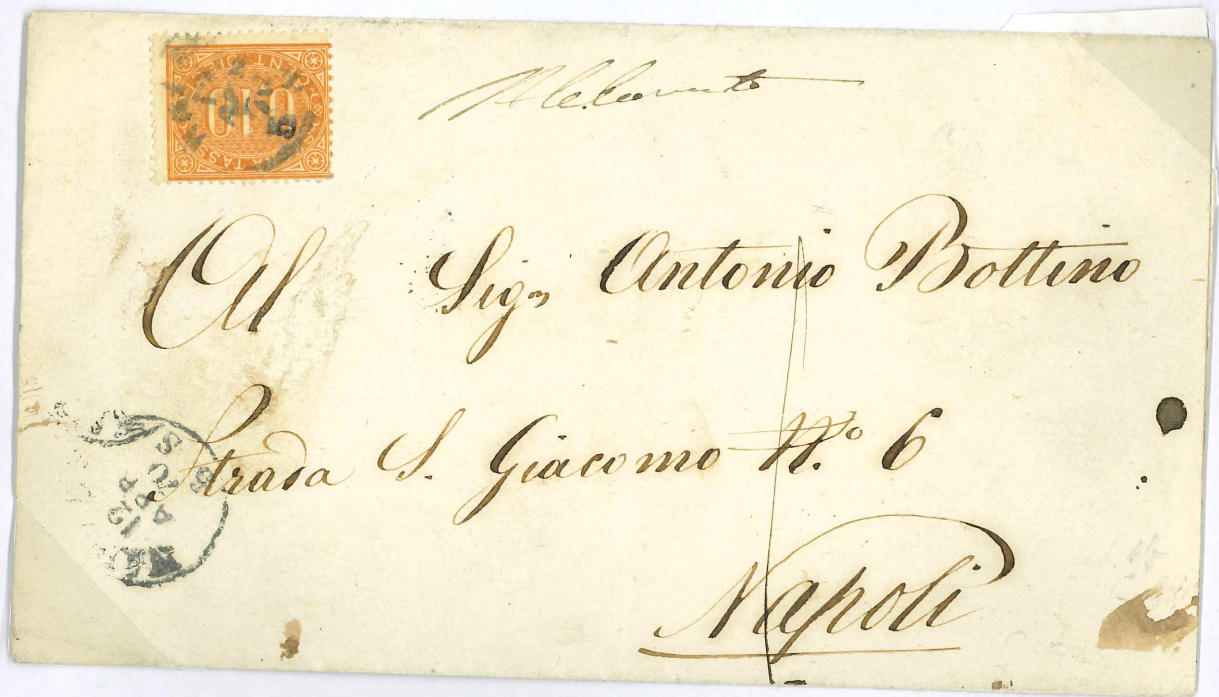 0,10
Al Sig.r Antonio Bottino
Strada S. Giacomo N.º 6
Napoli